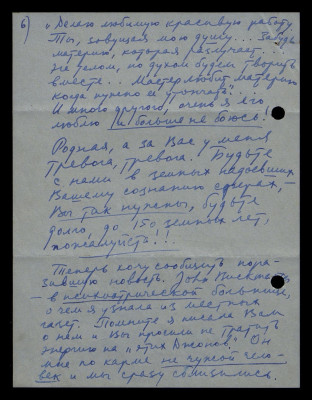 6) „Делаю любимую красивую работу
Ты, зовущая мою душу... Забудь
материю, которая разлучает...
не телом, но духом будем творить
вместе... Мастер любит материю
когда нужно ее утончать"...
И много другого, очень я его
люблю и больше не боюсь!
Родная, а за Вас у меня
тревога, тревога. Будьте
с нами в земных надоевших
Вашему сознанию сферах, –
Вы так нужны, будьте
долго, до 150 земных лет,
пожалуйста!!!
Теперь хочу сообщить пора-
зившую новость. John
– в психиатрической больнице,
о чем я узнала из местных
газет. Помните я писала Вам
о нем и Вы просили не тратить
энергию на „этих Джонов." Он
мне по карме не чужой чело-
век и мы сразу сблизились.